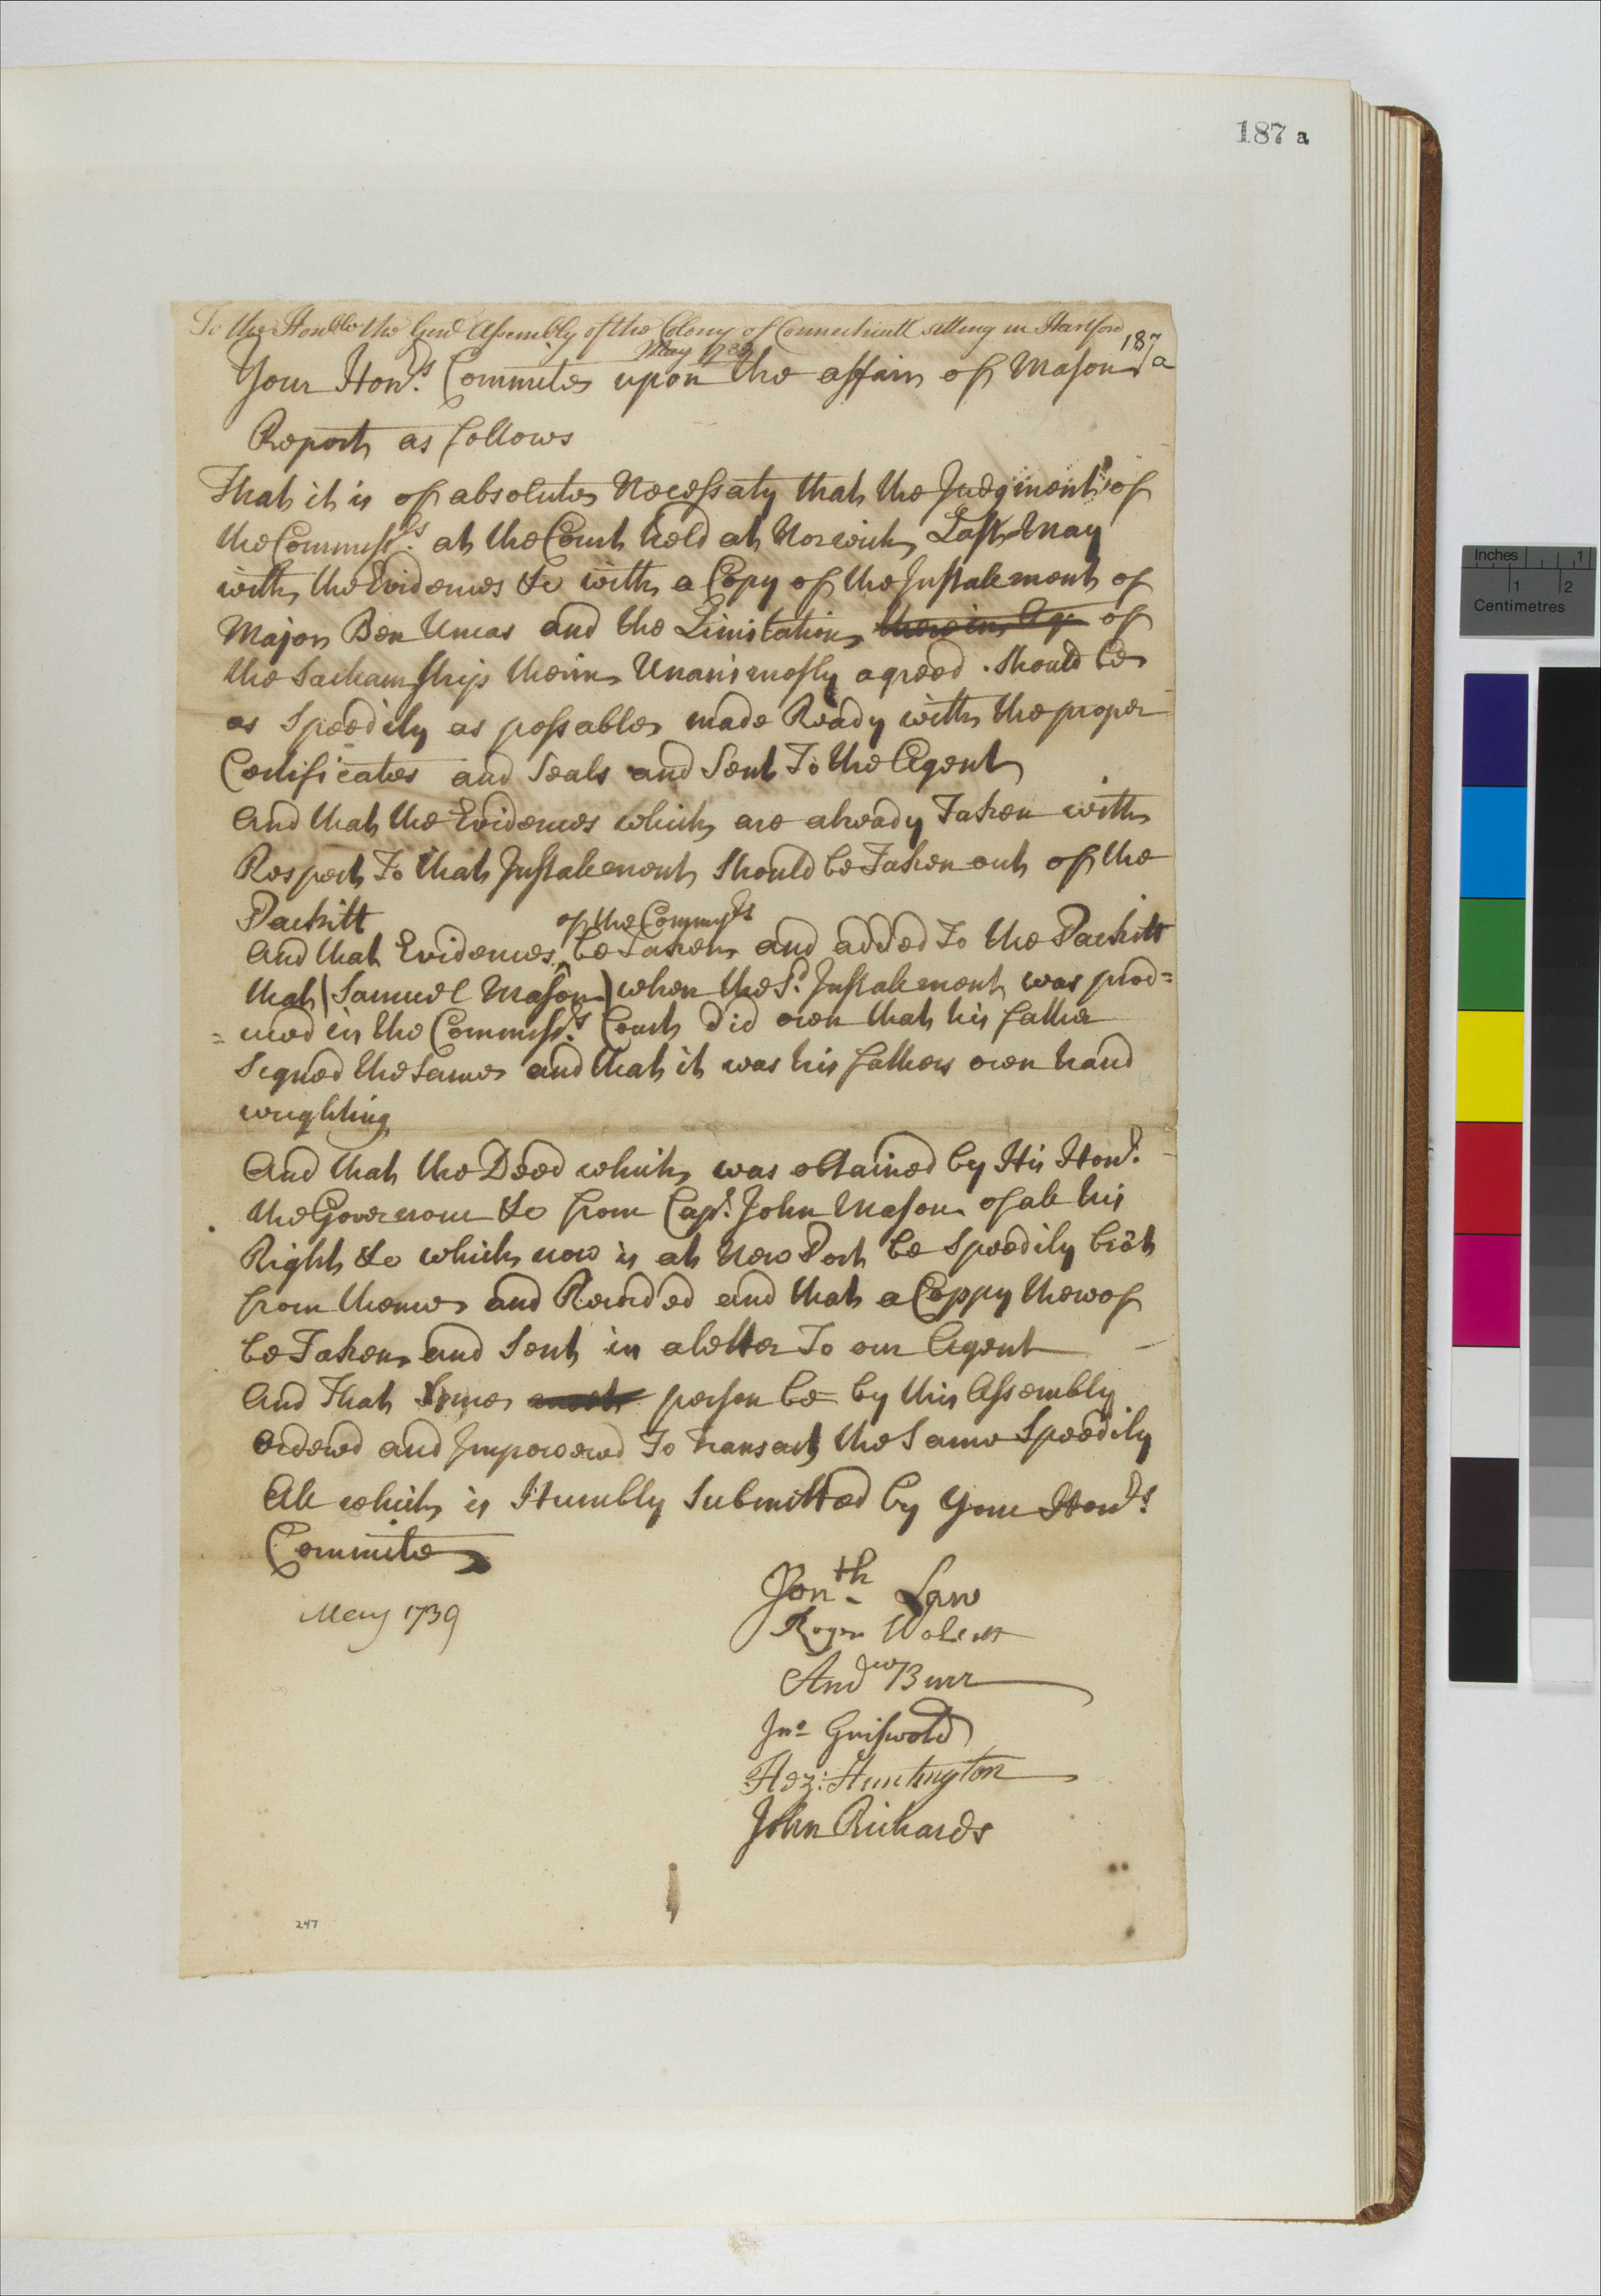 187 a
To the Honble the Genl Assembly of the Colony of Connecticutt sitting in Hartford
May 1739
187
a
Your Honrs Commitee upon the affair of Mason
Report as follows
That it is of absolute Necessaty that the Judgment of
the Commissrs at the Court held at Norwich Last May
with the Evidences &c with a Copy of the Instalement of
Major Ben Uncas and the Limitation therein of
the Sachamship therein Unanimosly agreed Should be
as Speedily as possable made Ready with the proper
Certificates and Seals and Sent To the Agent
And that the Evidences which are already Taken with
Respect To that Instalement Should be Taken out of the
Packitt
of the Commissrs
And that Evidences ^ be Taken and added To the Packitt
that (Samuel Mason) when the Sd Instalement was prod=
=uced in the Commissrs Court did own that his father
Signed the Same and that it was his fathers own hand
wrighting
And that the Deed which was obtained by His Honr
the Governour &c from Capt. John Mason of all his
Right &c which now is at New Port be Speedily brôt
from thence and Recorded and that a Coppy thereof
be Taken and Sent in a letter To our Agent
And That Some person be by this Assembly
ordered and Impowered To transact the Same Speedily
All which is Humbly Submitted by Your Honrs
Commitee
May 1739
Jonth Law
Roger Wolcott
Andw Burr
Jno Griswold
Hez: Huntington
John Richards
247
Inches 1
1 2
Centimetres